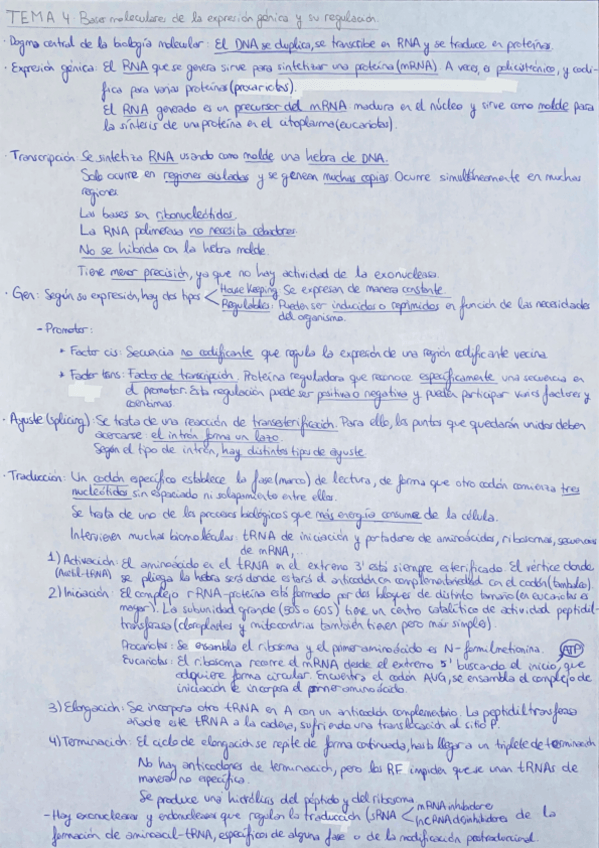 TEMA 4: Bases moleculares de la expresión génica y su regulación.
· Dogma central de la biología molecular: El DNA se duplica, se transcribe en RNA y se traduce en proteínas.
· Expresión génica: El RNA que se genera sirve para sintetizar una proteína (mRNA). A veces, es policistrónico, y codi-
fica para varias proteínas (procariotas).
El RNA generado es un precursor del mRNA madura en el núcleo y sirve como molde para
la síntesis de una proteína en el citoplasma (eucariotas).
· Transcripción: Se sintetiza RNA usando como molde una hebra de DNA.
Solo ocurre en regiones aisladas y se generan muchas copias. Ocurre simultáneamente en muchas
regiones.
Las bases son ribonucleótidos.
La RNA polimerasa no necesita cebadores.
No se hibrida con la hebra molde.
Tiene menor precisión, ya que no hay actividad de la exonucleasa.
· Gen: Según su expresión, hay dos tipos < House Keeping: Se expresan de manera constante.
Regulables: Pueden ser inducidos o reprimidos en función de las necesidades
del organismo.
- Promotor:
* Factor cis: Secuencia no codificante que regula la expresión de una región codificante vecina.
* Factor trans: Factor de transcripción. Proteína reguladora que reconoce específicamente una secuencia en
el promotor. Esta regulación puede ser positiva o negativa y pueden participar varios factores y
coenzimas.
· Ajuste (splicing): Se trata de una reacción de transesterificación. Para ello, los puntos que quedarán unidos deben
acercarse: el intrón forma un lazo.
Según el tipo de intrón, hay distintos tipos de ajuste.
· Traducción: Un codón específico establece la fase (marco) de lectura, de forma que otro codón comienza tres
nucleótidos sin espaciado ni solapamiento entre ellos.
Se trata de uno de los procesos biológicos que más energía consume de la célula.
Intervienen muchas biomoléculas: tRNA de iniciación y portadores de aminoácidos, ribosomas, secuencias
de mRNA,...
1) Activación: El aminoácido en el tRNA en el extremo 3' está siempre esterificado. El vértice donde
se pliega la hebra será donde estará el anticodón con complementariedad con el codón (tambaleo).
2) Iniciación: El complejo rRNA-proteína está formado por dos bloques de distinto tamaño (en eucariotas es
mayor). La subunidad grande (50S o 60S) tiene un centro catalítico de actividad peptidil-
transferasa (cloroplastos y mitocondrias también tienen pero más simple).
Procariotas: Se ensambla el ribosoma y el primer aminoácido es N-formilmetionina. ATP
Eucariotas: El ribosoma recorre el mRNA desde el extremo 5' buscando el inicio, que
adquiere forma circular. Encuentra el codón AUG, se ensambla el complejo de
iniciación e incorpora el primer aminoácido.
3) Elongación: Se incorpora otro tRNA en A con un anticodón complementario. La peptidil transferasa
añade este tRNA a la cadena, sufriendo una translocación al sitio P.
4) Terminación: El ciclo de elongación se repite de forma continuada, hasta llegar a un triplete de terminación
No hay anticodones de terminación, pero los RF impiden que se unan tRNAs de
manera no específica.
Se produce una hidrólisis del péptido y del ribosoma.
- Hay exonucleasas y endonucleasas que regulan la traducción (sRNA < mRNA inhibidores
lncRNA desinhibidores de la
formación de aminoacil-tRNA, específicos de alguna fase o de la modificación postraduccional.